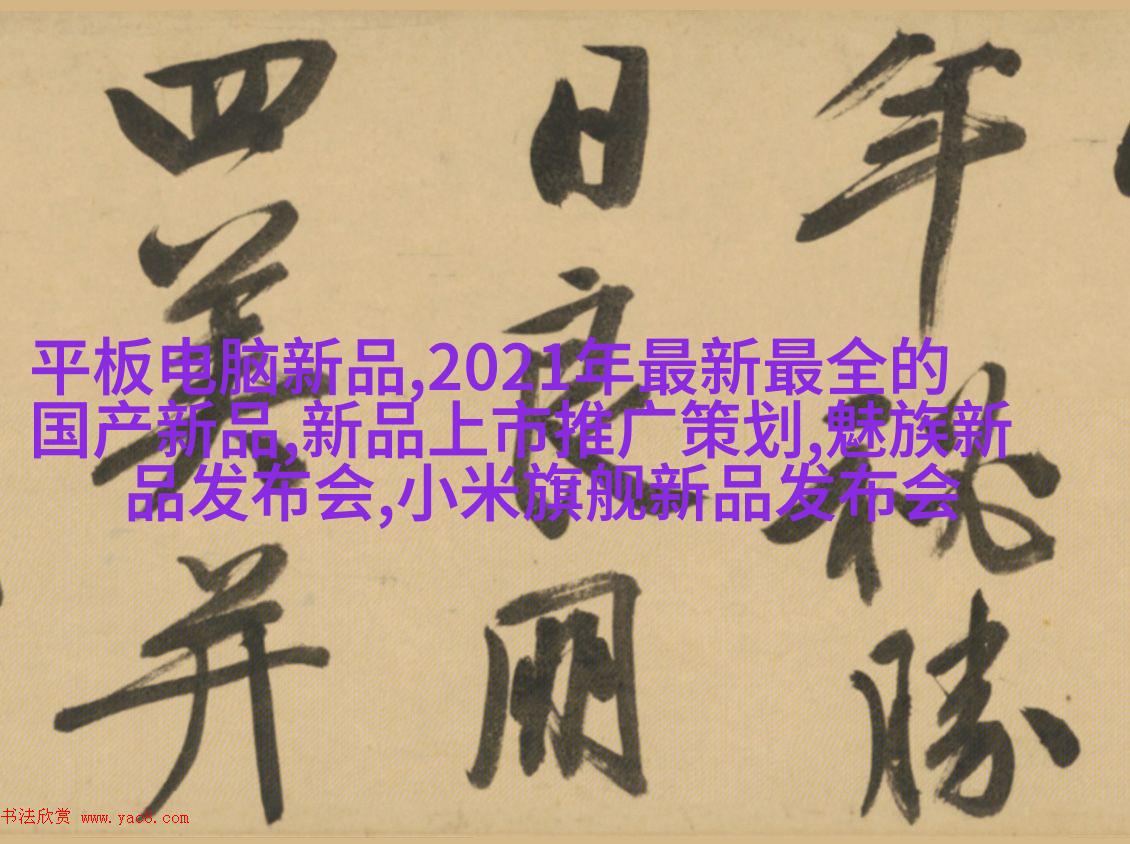 年勝
日良朋
四美并
平板电脑新品,2021年最新最全的
国产新品,新品上市推广策划,魅族新
品发布会,小米旗舰新品发布会
书法欣赏 www.yac8.com